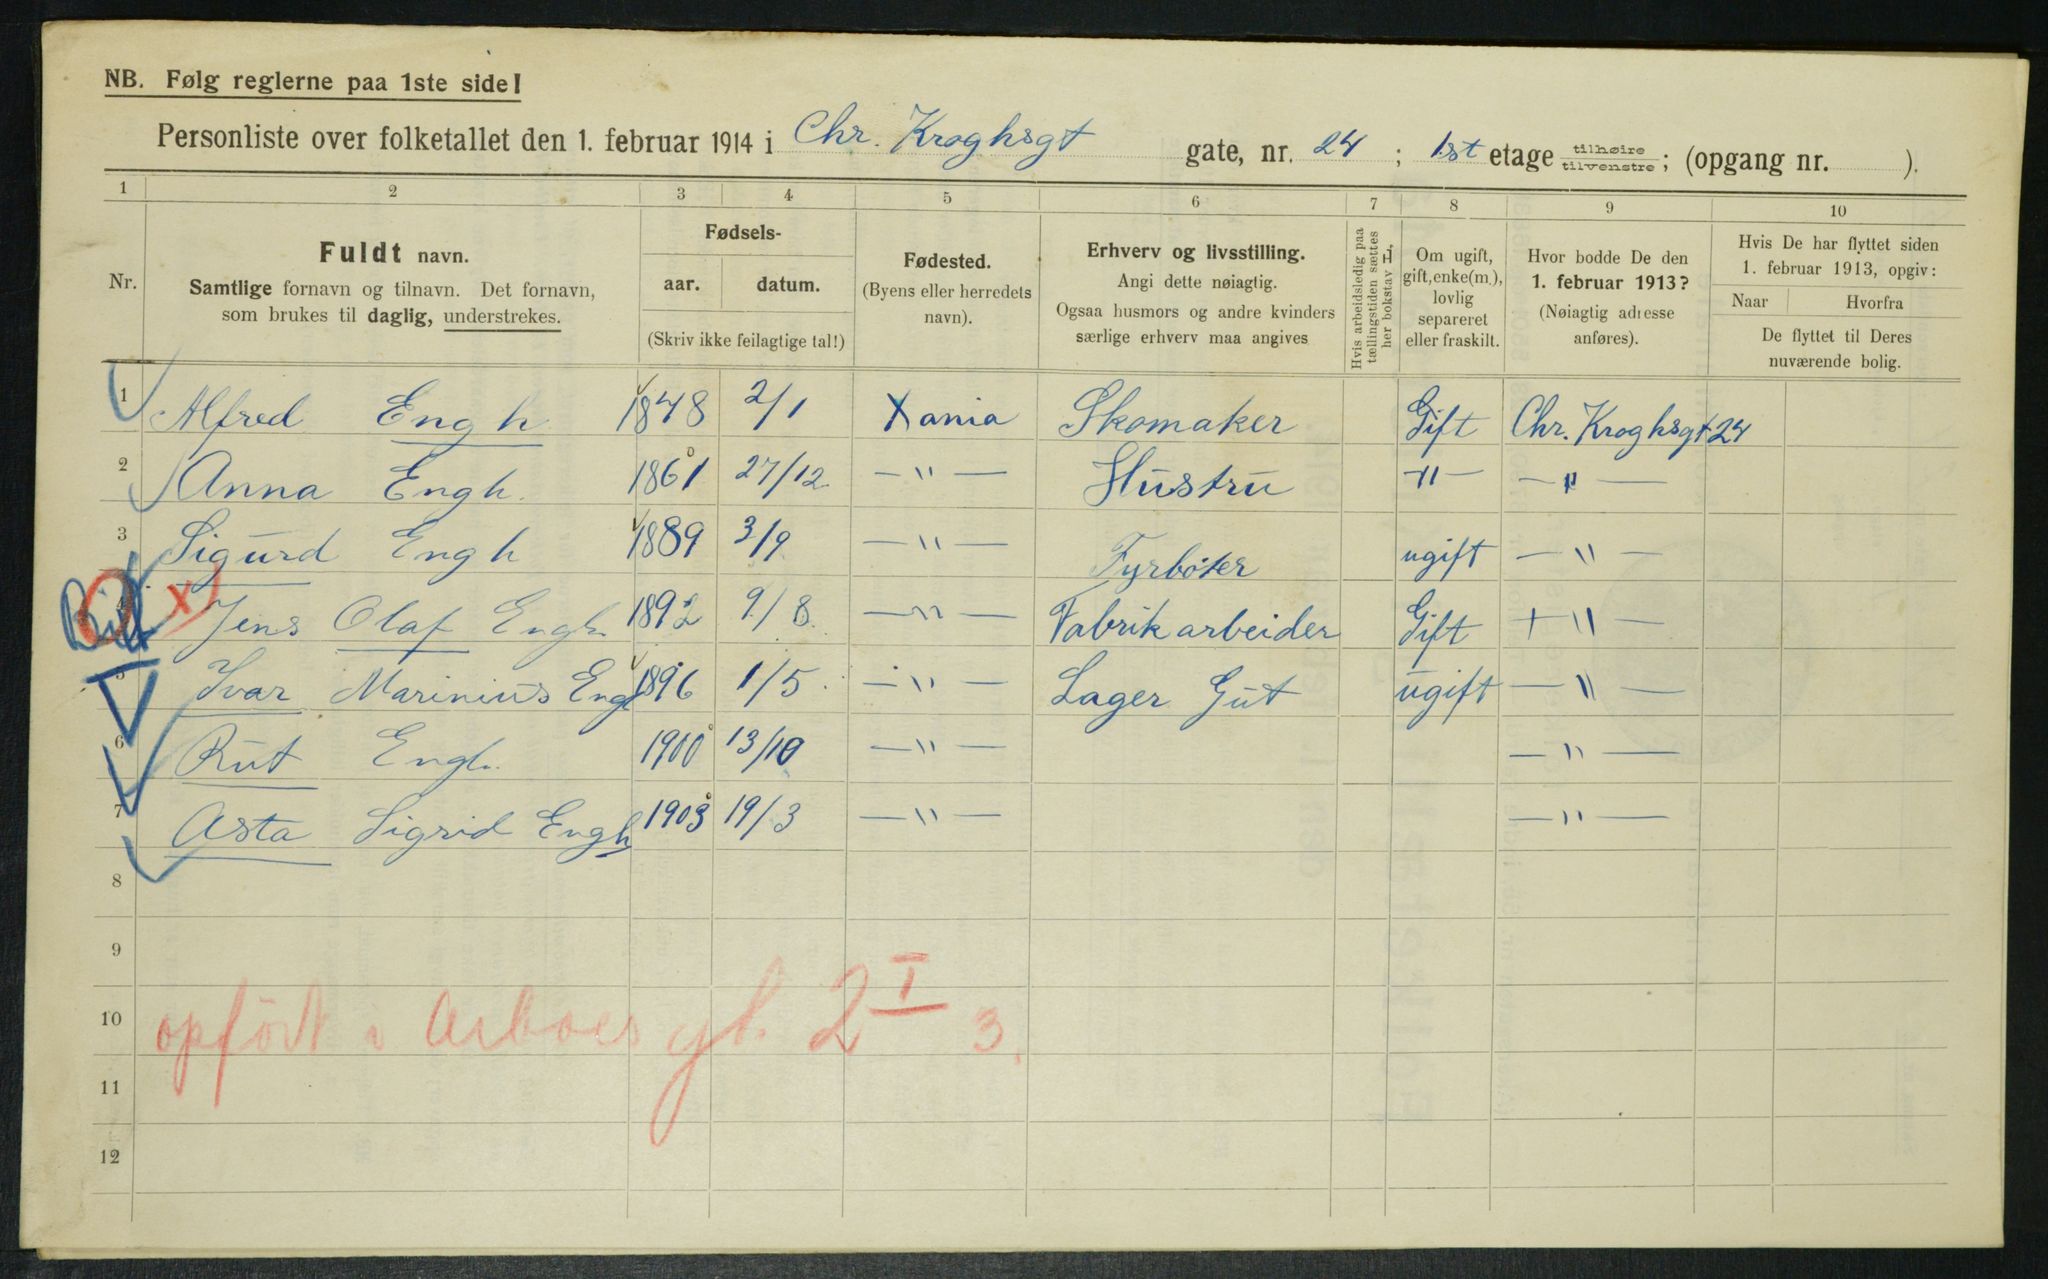 NB. Følg reglerne paa 1ste side!
Personliste over folketallet den 1. februar 1914 i Chr. Kroghsgt gate, nr. 24 ; 1.st etage tilhøire tilvenstre; (opgang nr. ).
1 2 3 4 5 6 7 8 9 10
Nr.
Fuldt navn.
Samtlige fornavn og tilnavn. Det fornavn,
som brukes til daglig, understrekes.
Fødsels-
aar. datum.
(Skriv ikke feilagtige tal!)
Fødested.
(Byens eller herredets
navn).
Erhverv og livsstilling.
Angi dette nøiagtig.
Ogsaa husmors og andre kvinders
særlige erhverv maa angives
Hvis arbeidsledig paa
tællingstiden sættes
her bokstav L,
Om ugift,
gift, enke(m.),
lovlig
separeret
eller fraskilt.
Hvor bodde De den
1. februar 1913?
(Nøiagtig adresse
anføres).
Hvis De har flyttet siden
1. februar 1913, opgiv:
Naar Hvorfra
De flyttet til Deres
nuværende bolig.
1 Alfred Engh 1848 2/1 Xania Skomaker Gift Chr. Kroghsgt 24
2 Anna Engh. 1861 27/12 — " — Hustru — " — — " —
3 Sigurd Engh 1889 3/9 — " — Fyrbøter ugift — " —
4 x) Jens Olaf Engh. 1892 9/8. — " — Fabrikarbeider Gift — " —
5 Ivar Marinius Engh 1896 1/5. — " — Lager Gut ugift — " —
6 Rut Engh. 1900 13/10 — " — — " —
7 Asta Sigrid Engh 1903 19/3 — " — — " —
8
9
10 opført i Arboes gt. 2 I 3.
11
12